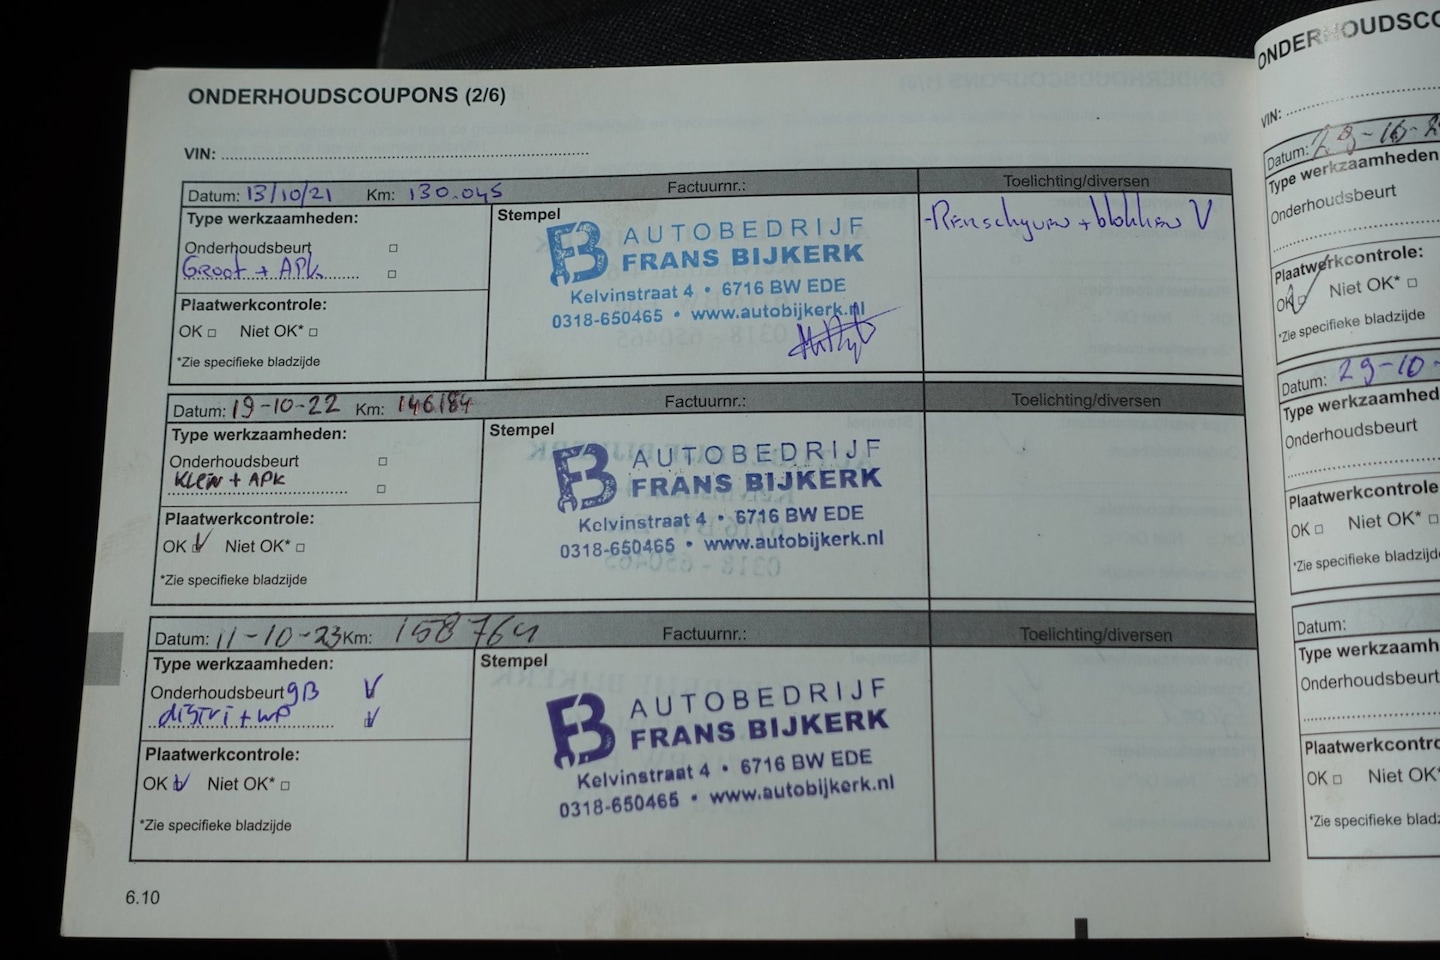 ONDERHOUDSCOUPONS (2/6)
VIN:
Datum: 13/10/21 Km: 130.045 Factuurnr.: Toelichting/diversen
Type werkzaamheden:
Onderhoudsbeurt
Groot + APK
Plaatwerkcontrole:
OK Niet OK*
*Zie specifieke bladzijde
Stempel
FB AUTOBEDRIJF
FRANS BIJKERK
Kelvinstraat 4 • 6716 BW EDE
0318-650465 • www.autobijkerk.nl
-Remschijven + blokken V
Datum: 19-10-22 Km: 146184 Factuurnr.: Toelichting/diversen
Type werkzaamheden:
Onderhoudsbeurt
Klein + APK
Plaatwerkcontrole:
OK V Niet OK*
*Zie specifieke bladzijde
Stempel
FB AUTOBEDRIJF
FRANS BIJKERK
Kelvinstraat 4 • 6716 BW EDE
0318-650465 • www.autobijkerk.nl
Datum: 11-10-23 Km: 158764 Factuurnr.: Toelichting/diversen
Type werkzaamheden:
Onderhoudsbeurt gB V
distri + WP V
Plaatwerkcontrole:
OK V Niet OK*
*Zie specifieke bladzijde
Stempel
FB AUTOBEDRIJF
FRANS BIJKERK
Kelvinstraat 4 • 6716 BW EDE
0318-650465 • www.autobijkerk.nl
6.10
ONDERHOUDSCO
VIN:
Datum:
Type werkzaamheden
Onderhoudsbeurt
Plaatwerkcontrole:
OK Niet OK*
*Zie specifieke bladzijde
Datum: 29-10-
Type werkzaamhed
Onderhoudsbeurt
Plaatwerkcontrole
OK Niet OK*
*Zie specifieke bladzijd
Datum:
Type werkzaamh
Onderhoudsbeurt
Plaatwerkcontro
OK Niet OK*
*Zie specifieke blad